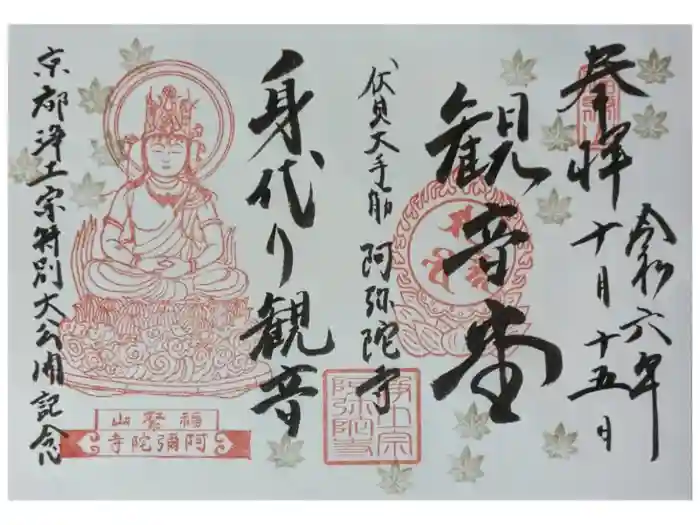 奉拝
令和六年
十月十五日
観音堂
伏見大手筋 阿弥陀寺
身代り観音
京都浄土宗特別大公開記念
阿彌陀寺
浄土宗
阿弥陀寺